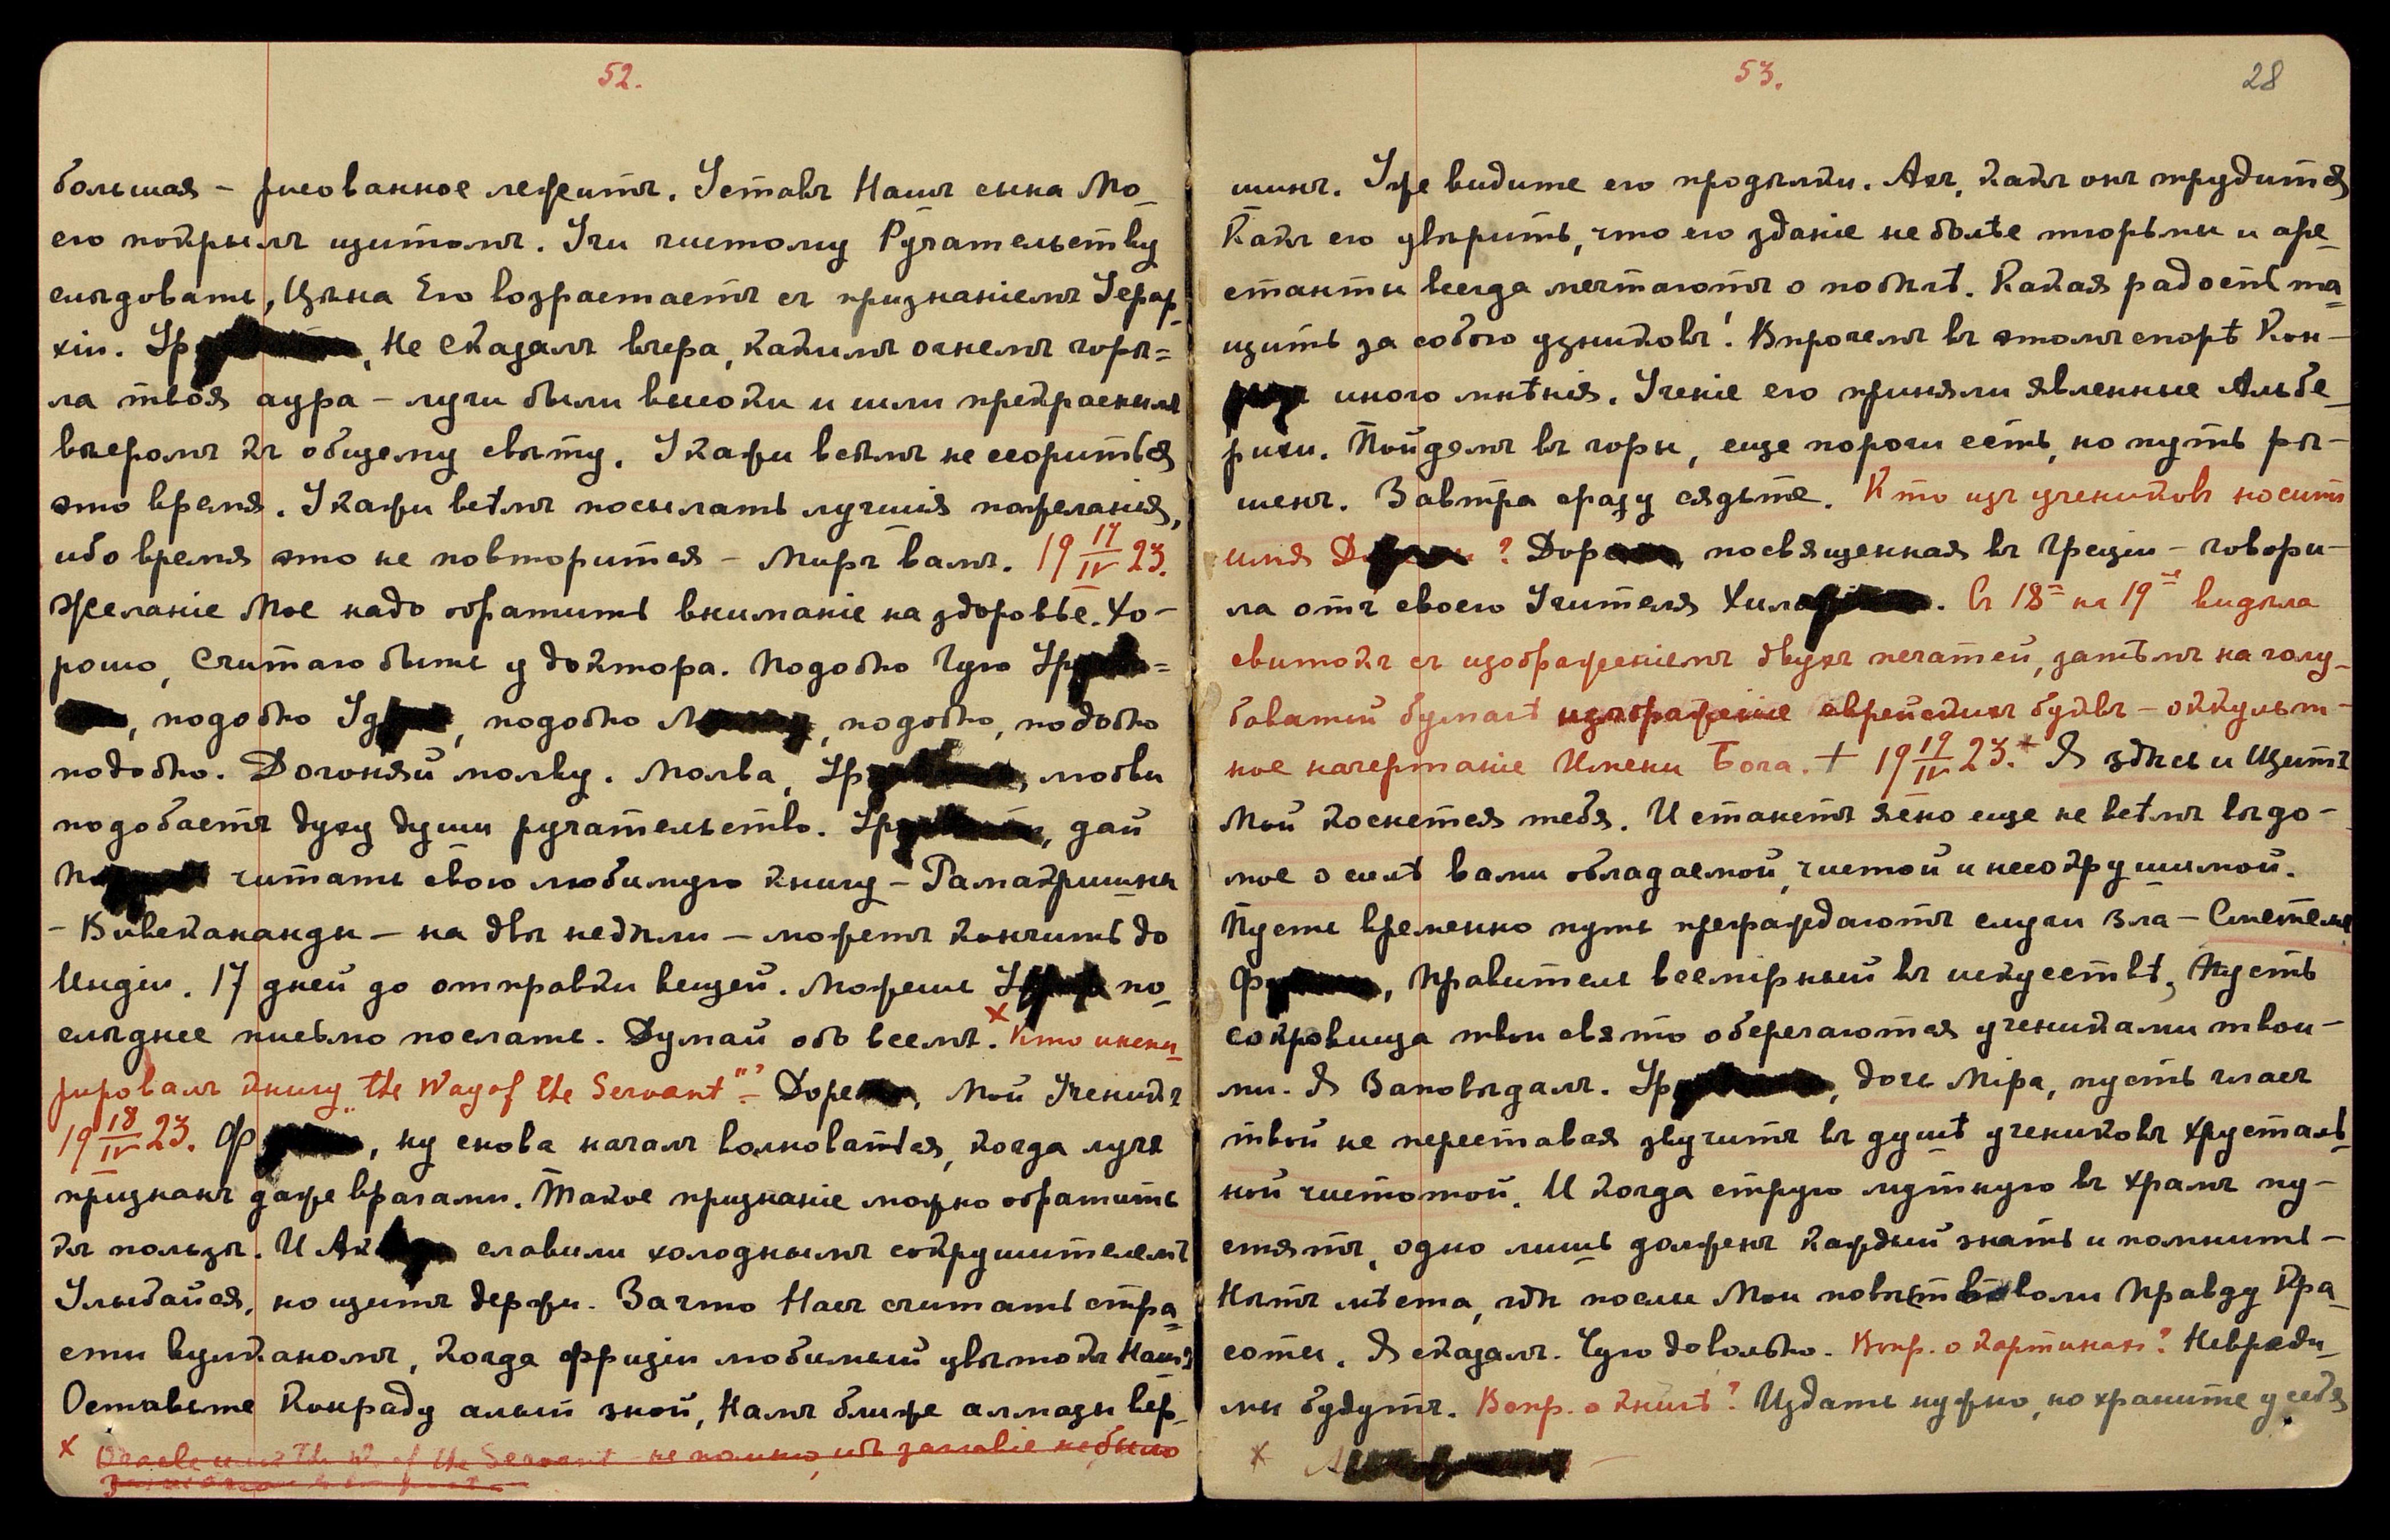 52.
большая – рисованное лежитъ. Уставъ Нашъ сына Мо-
его покрылъ щитомъ. Учи чистому Ручательству
слѣдовать, Цѣна Его возрастаетъ съ признаніемъ Іерар-
хіи. Ур, Не Сказалъ вчера, какимъ огнемъ горѣ=
ла твоя аура – лучи были высоки и шли прекраснымъ
вѣеромъ къ общему свѣту. Укажи всѣмъ не ссориться
это время. Укажи всѣмъ посылать лучшія пожеланія,
ибо время это не повторится – Миръ вамъ. 19 17/IV 23.
Желаніе Мое надо обратить вниманіе на здоровье. Хо-
рошо, Считаю быть у доктора. Подобно Чую Ур=
, подобно Уд, подобно М, подобно, подобно
подобно. Догоняй молву. Молва, Ур, любви
подобаетъ духу души ручательство. Ур, дай
П читать свою любимую книгу – Рамакришны
– Вивекананды – на двѣ недѣли – можетъ кончить до
Индіи. 17 дней до отправки вещей. Можешь У по-
слѣднее письмо послать. Думай обо всемъ. х Кто инспи-
рировалъ книгу "the Way of the Servant"? – Доре, Мой Ученикъ
19 18/IV 23. Ф, ну снова началъ волноваться, когда лучъ
признанъ даже врагами. Такое признаніе можно обратить
къ пользѣ. И Ак славили холоднымъ сокрушителемъ
Улыбайся, но щитъ держи. Зачто Насъ считать стра=
сти вулканомъ, когда фризіи любимый цвѣтокъ Нашъ
Оставьте Конраду алый зной, Намъ ближе алмазы вер-
х the W. of the Servant – не помню, ибо заглавіе не было
53.
28
шинъ. Уже видите его продѣлки. Ахъ, какъ онъ трудится
Какъ его увѣрить, что его зданіе не болѣе тюрьмы и аре-
станты всегда мечтаютъ о побѣгѣ. Какая радость та=
щить за собою узниковъ! Впрочемъ въ этомъ спорѣ Кон-
иного мнѣнія. Ученіе его приняли явленные Альбе-
рихи. Пойдемъ въ горы, еще пороги есть, но путь рѣ-
шенъ. Завтра сразу сядьте. Кто изъ учениковъ носитъ
имя Д ? Дор, посвященная въ Греціи – говори-
ла отъ своего Учителя Хила. Съ 18= на 19=е видѣла
свитокъ съ изображеніемъ двухъ печатей, затѣмъ на голу-
боватой бумагѣ изображеніе еврейскихъ буквъ – оккульт-
ное начертаніе Имени Бога. + 19 19/IV 23.* Я здѣсь и Щитъ
Мой коснется тебя. И станетъ ясно еще не всѣмъ вѣдо-
мое о силѣ вами обладаемой, чистой и несокрушимой.
Пусть временно путь преграждаютъ слуги зла – Сметемъ
Ф, Правитель всемірный въ искусствѣ, Пусть
сокровища твои свято оберегаются учениками твои-
ми. Я Заповѣдалъ. Ур, дочь Міра, пусть гласъ
твой не переставая звучитъ въ душѣ учениковъ хрусталь-
ной чистотой. И когда струю мутную въ храмъ пу-
стятъ, одно лишь долженъ каждый знать и помнить –
Нѣтъ мѣста, гдѣ послы Мои повѣствовали Правду Кра-
соты. Я сказалъ. Чую довольно. Вопр. о картинахъ? Невреди-
мы будутъ. Вопр. о книгѣ? Издать нужно, но храните у себя
х А